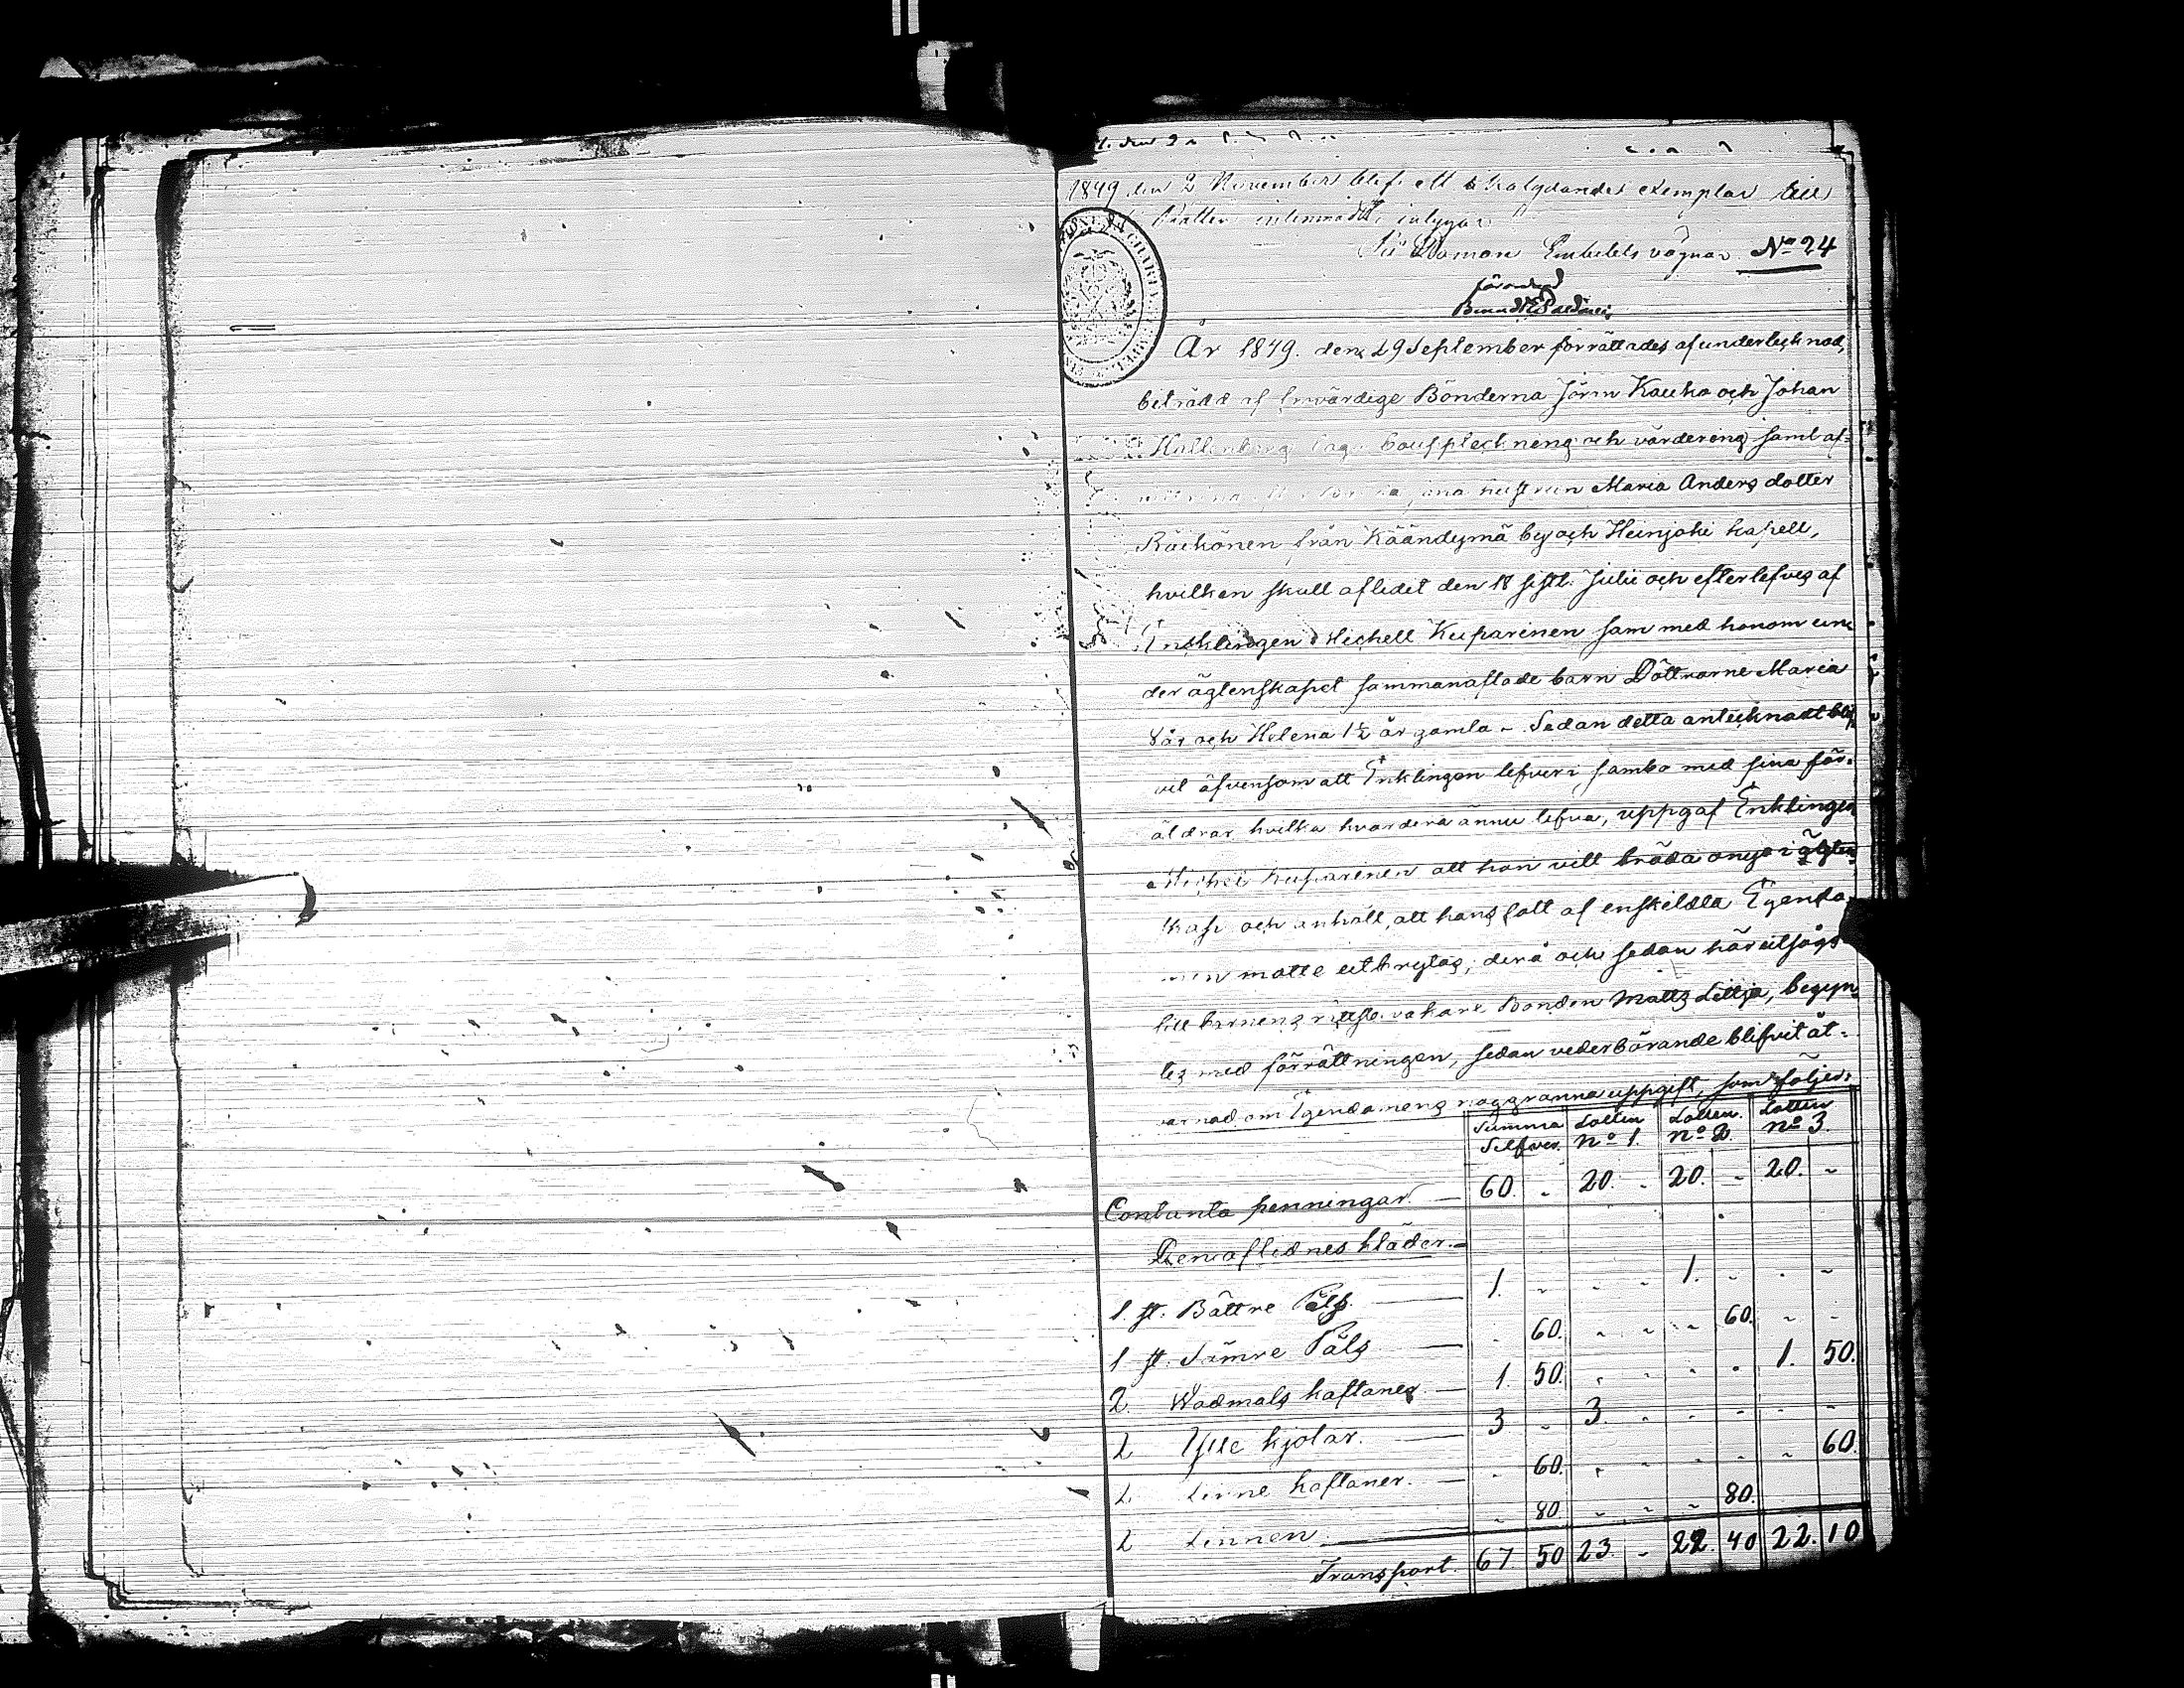 1849 den 2 November blef ett likalydandes exemplar till
Rätten inlemnadt, intygar
På Domare Embetets vägnar No 24
År 1849. den 29 September förrättades af undertecknad,
biträdd af trovärdige Bönderna Jöran Kauko och Johan
Kallenberg laga bouppteckneng och värdering samt af-
hustrun Maria Anders dotter
Räikönen från Käändymä by och Heinjoki kapell,
hvilken skall aflidit den 18 sistl. Julii och efterlefves af
Enklingen Michell Kuparinen sam med honom un-
der ägtenskapet sammanaflade barn Döttrarne Maria
8 år och Helena 1½ år gamla - Sedan detta antecknadt blif-
vit äfvensom att Enklingen lefver i sambo med sina för-
äldrar hvilka hvardera ännu lefva, uppgaf Enklingen
Michel Kuparinen att han vill träda ånyo i ägten-
skap och anhöll, att hans lott af enskildta Egendo-
men måtte utbrytas; derå och sedan här utsågs
till barnens rättsbevakare Bonden Matts Littja, begyn-
tes med förrättningen, sedan vederbörande blifvit åt-
varnad om Egendomens noggranna uppgift, som följer:
Summa Silfver. Lotten No 1. Lotten No 2. Lotten No 3
Contanta penningar. — 60. - 20. - 20. - 20. -
Den aflidnes kläder. -
1. st. Bättre Päls. — 1. - - - 1. - - -
1 st. Sämre Päls — - 60. - - - 60. - -
2. Wadmals kaftaner — 1. 50. - - - - 1. 50.
2 Ylle kjolar. — 3 - 3. - - - - -
2. Linne kaftaner. — - 60. - - - - - 60.
2 Linnen. — - 80 - - - 80.
Transport. 67. 50 23. - 22. 40 22. 10